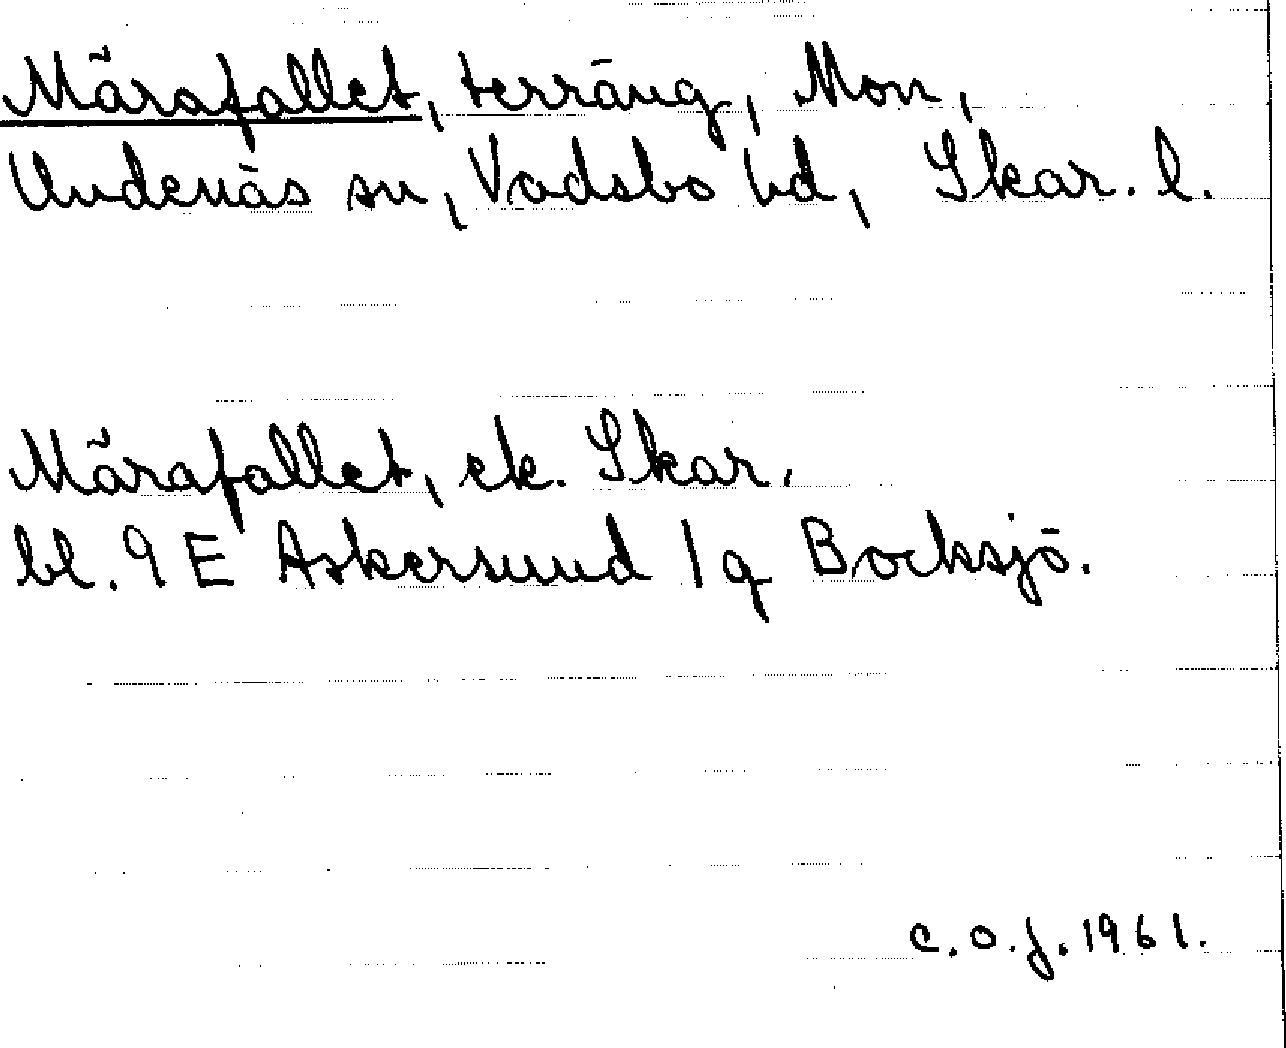 Märafallet, terräng, Mon,
Undenäs sn, Vadsbo hd, Skar. l.
Märafallet, ek. Skar.
bl. 9 E Askersund 1 g Bocksjö.
C.O.J. 1961.